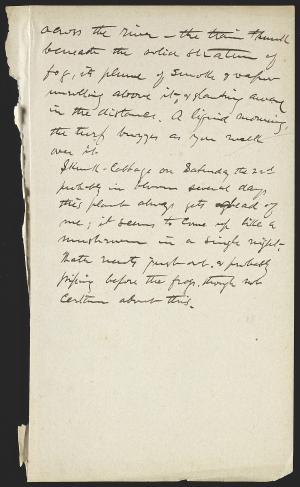 across the river – the train
beneath the solid stratum of
fog, its plume of smoke & vapor
unrolling above it, & slanting away
in the distance. A liquid morning,
the turf buzzes as you walk
over it.
Skunk-Cabbage on Saturday the 22d
probably in bloom several days
this plant always gets ahead of
me; it seems to come up like a
mushroom in a single night.
newts just out, & probably
piping before the frogs, though not
certain about this.